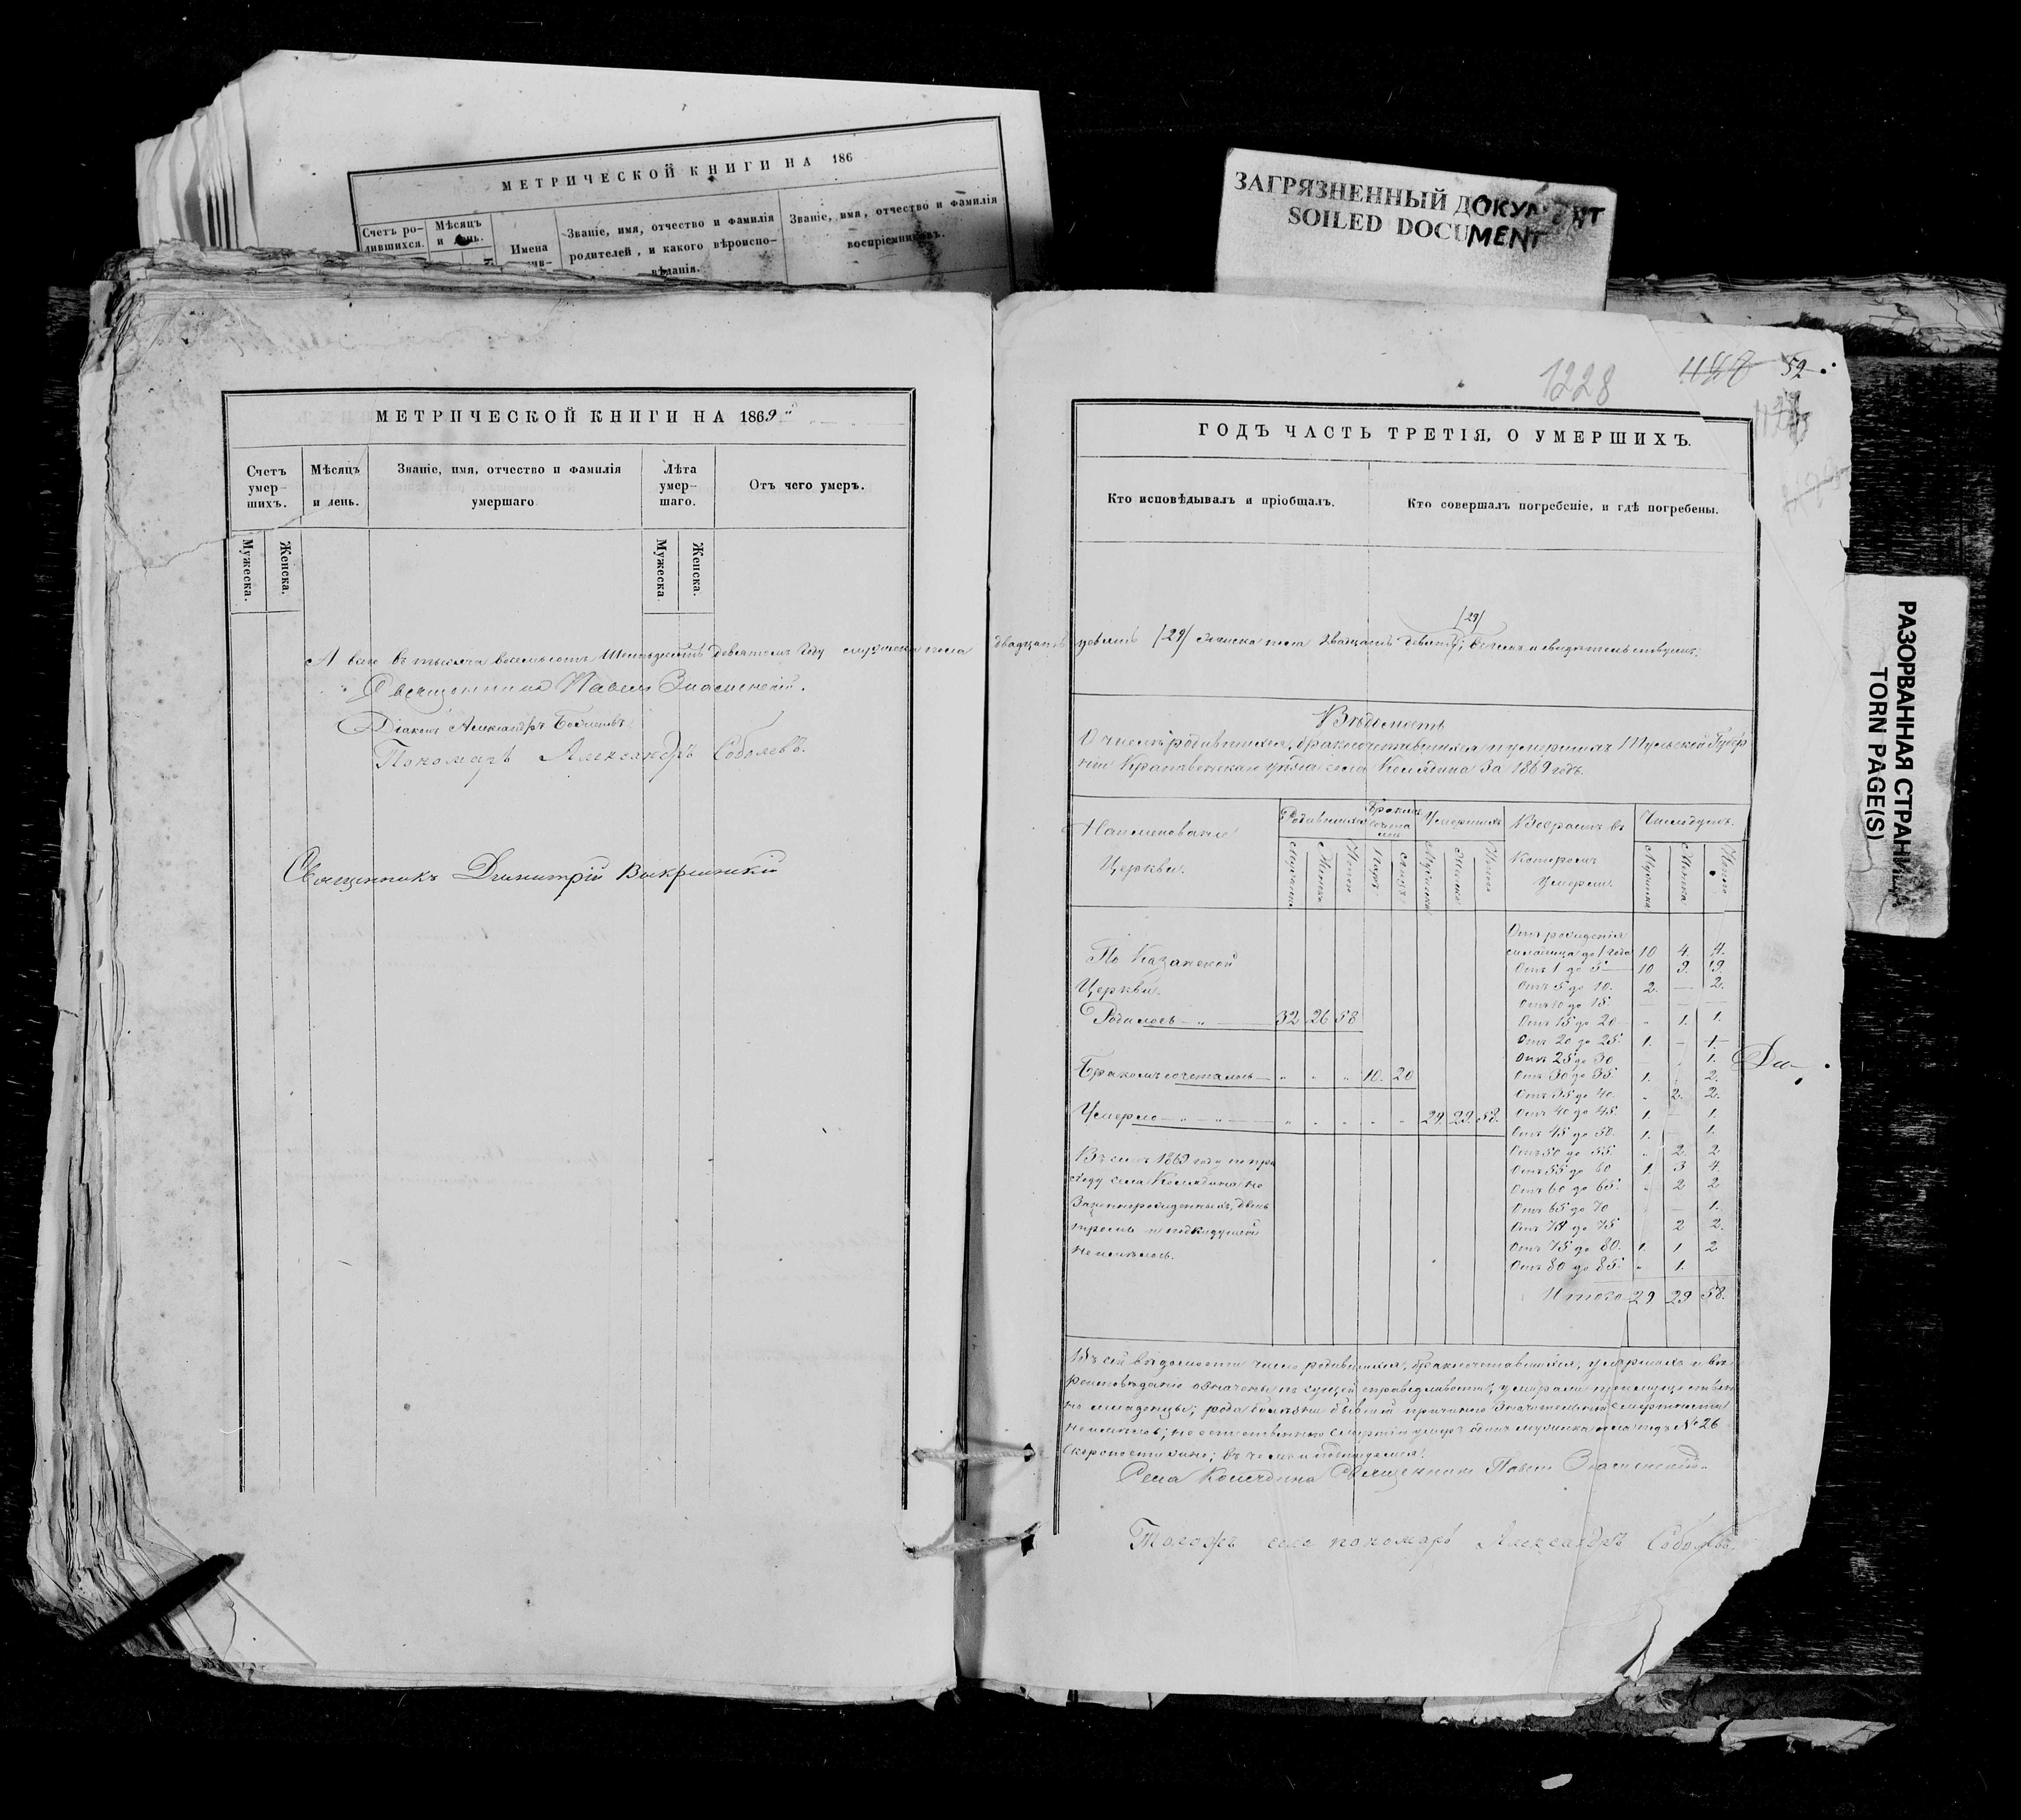 МЕТРИЧЕСКОЙ КНИГИ НА 186
Счетъ ро-
дившихся.
Мѣсяцъ
и день.
Имена
Званіе, имя, отчество и фамилія
родителей, и какого вѣроиспо-
вѣданія.
Званіе, имя, отчество и фамилія
воспріемниковъ.
ЗАГРЯЗНЕННЫЙ ДОКУМЕНТ
SOILED DOCUMENT
РАЗОРВАННАЯ СТРАНИЦА
TORN PAGE(S)
МЕТРИЧЕСКОЙ КНИГИ НА 1869
Счетъ
умер-
шихъ.
Мѣсяцъ
и день.
Званіе, имя, отчество и фамилія
умершаго
Лѣта
умер-
шаго.
Отъ чего умеръ.
Мужеска.
Женска.
Мужеска.
Женска.
А всего въ тысяча восемьсотъ шестьдесятъ девятомъ году мужеска пола двадцать
Священникъ Павелъ Знаменскій.
Діаконъ Александръ
Пономарь Александръ Соболевъ.
Священникъ Димитрій Воскресенскій
1228
52
ГОДЪ ЧАСТЬ ТРЕТІЯ, О УМЕРШИХЪ.
Кто исповѣдывалъ и пріобщалъ.
Кто совершалъ погребеніе, и гдѣ погребены.
/29/
девять /29/ женска пола двадцать девять; въ чемъ и свидѣтельствуемъ.
Вѣдомость
О числѣ родившихся, бракосочетавшихся и умершихъ Тульской Губер
ніи Крапивенскаго уѣзда села за 1869 годъ.
Наименованіе
Церкви.
Родившихся
Умершихъ
Возрастъ въ
Которомъ
Умерли.
Число душъ.
Мужеска
Женска
Итого
Паръ
Лицъ
Мужеска
Женска
Итого
Мужеска
Женска
Итого
По Казанской
Церкви.
Родилось 32 26 58
Бракомъ сочеталось 10. 20
Умерло 29. 29. 58.
Въ семъ 1869 году по при
ходу села не
незаконнорожденныхъ, двой
тройни и подкидышей
не имѣлось.
Отъ рожденія
младенца до 1 года 10 4. 4.
Отъ 1 до 5 10 9. 19.
Отъ 5 до 10. 2. — 2.
Отъ 10 до 15 — —
Отъ 15 до 20 1. 1.
Отъ 20 до 25 1. — 1.
Отъ 25 до 30 1.
Отъ 30 до 35 1. 2.
Отъ 35 до 40. 2. 2.
Отъ 40 до 45 1. 1.
Отъ 45 до 50. 1. 1.
Отъ 50 до 55 2. 2
Отъ 55 до 60 1. 3 4.
Отъ 60 до 65 2 2
Отъ 65 до 70 — 1.
Отъ 70 до 75 2 2.
Отъ 75 до 80. 1. 1 2
Отъ 80 до 85. 1.
Итого 29 29 58.
Въ сей вѣдомости число родившихся, бракосочетавшихся, умершихъ и вѣ
роисповѣданіе означены по сущей справедливости; умирали преимуществен
но младенцы; рода болѣзни бывшей причиною значительной смертности
не имѣлось; неестественною смертію умеръ одинъ мужеска пола подъ № 26
скоропостижно; въ чемъ и подписуемся.
Села Священникъ Павелъ Знаменскій
Тогожъ села пономарь Александръ Соболевъ.